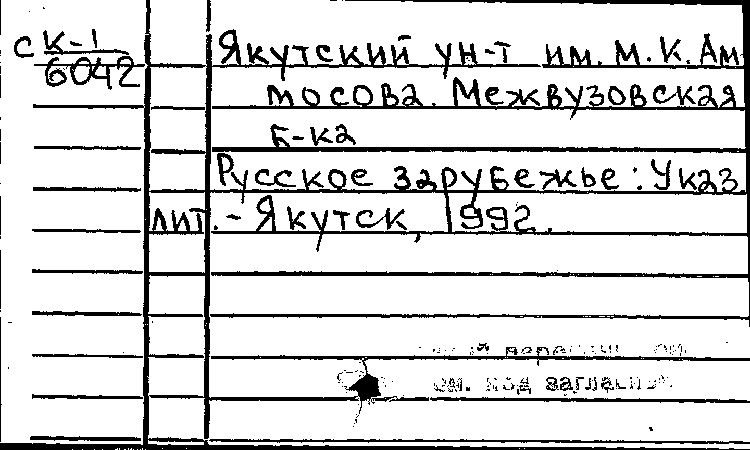 с К-1
6042
Якутский ун-т им. М. К. Ам-
мосова. Межвузовская
б-ка
Русское зарубежье: Указ.
лит. - Якутск, 1992.
см. под заглавием